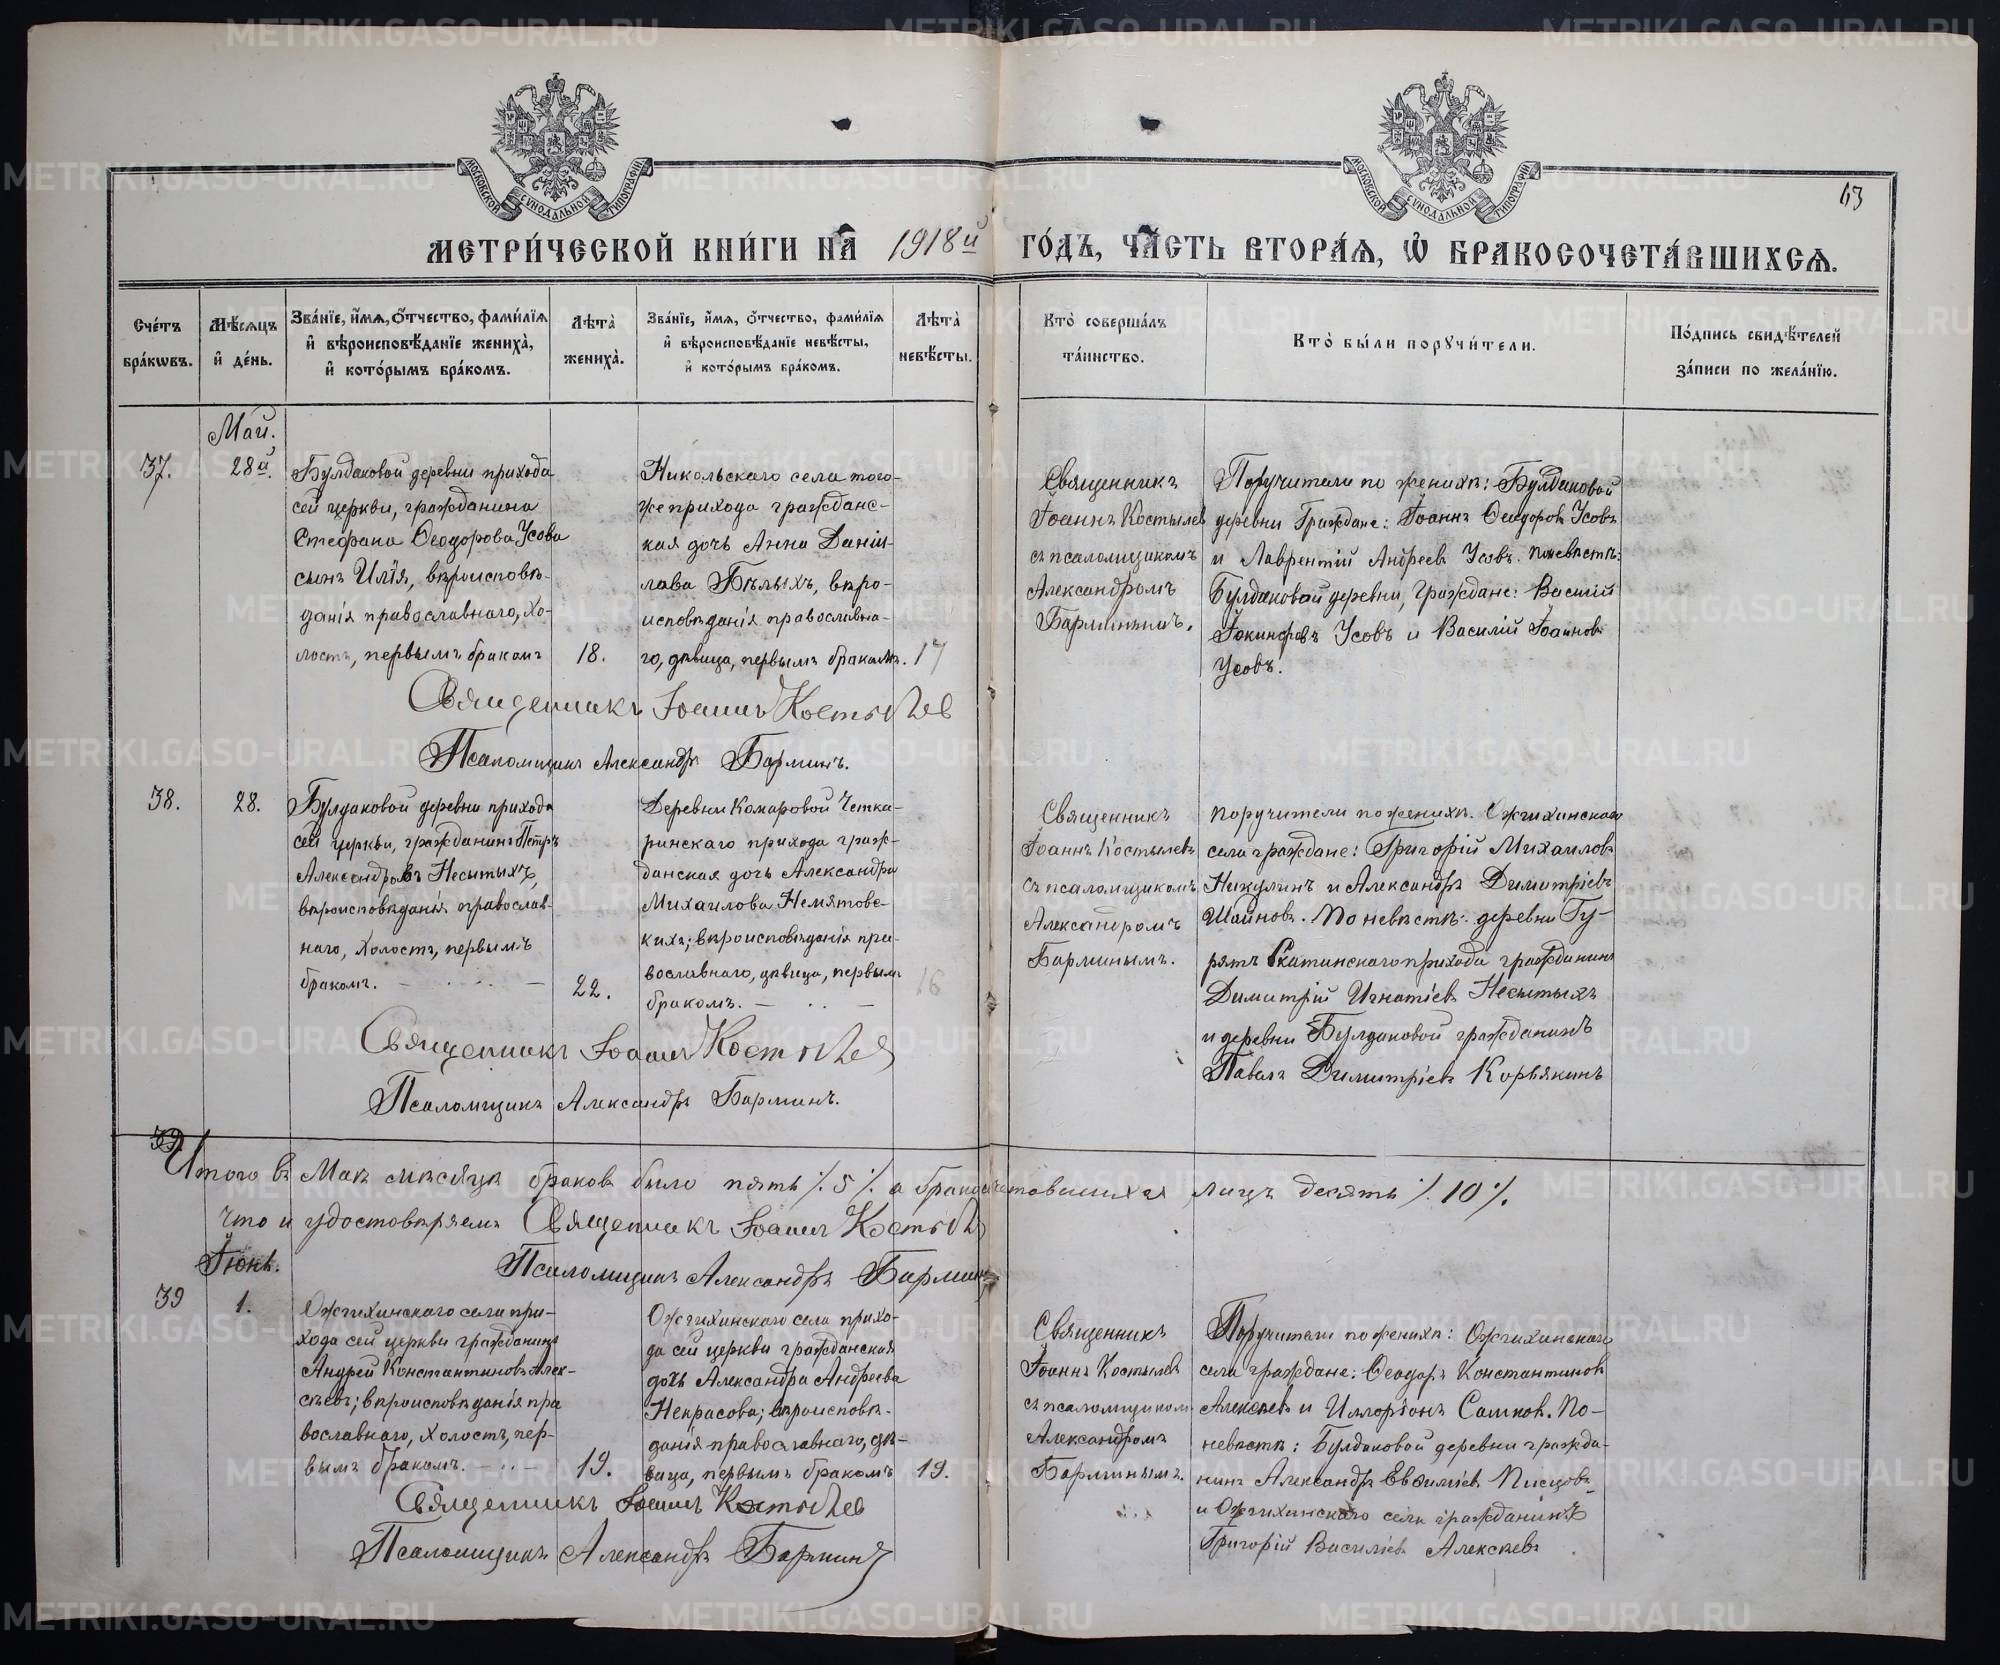 МОСКОВСКОЙ СѴНОДАЛЬНОЙ ТИПОГРАФІИ
МОСКОВСКОЙ СѴНОДАЛЬНОЙ ТИПОГРАФІИ
63
МЕТРИ́ЧЕСКОЙ КНИ́ГИ НА 1918й ГО́ДЪ, ЧА́СТЬ ВТОРА́Я, Ѡ БРАКОСОЧЕТА́ВШИХСѦ.
Сче́тъ бра́кѡвъ.
Мѣ́сяцъ и҆ де́нь.
Зва́нїе, и҆́мѧ, ѻ҆́тчество, фами́лїѧ и҆ вѣроисповѣ́данїе жениха̀, и҆ кото́рымъ бра́комъ.
Лѣ́та̀ жениха̀.
Зва́нїе, и҆́мѧ, ѻ҆́тчество, фами́лїѧ и҆ вѣроисповѣ́данїе невѣ́сты, и҆ кото́рымъ бра́комъ.
Лѣ́та̀ невѣ́сты.
Кто̀ соверша́лъ та́инство.
Кто̀ бы́ли порꙋчи́тели.
По́дпись свидѣ́телей за́писи по жела́нїю.
Май.
37.
28й.
Булдаковой деревни прихода
сей церкви, гражданина
Стефана Ѳеодорова Усова
сынъ Илія, вѣроисповѣ-
данія православнаго, хо-
лостъ, первымъ бракомъ
18.
Никольскаго села того-
же прихода гражданс-
кая дочь Анна Даніи-
лова Бѣлыхъ, вѣро-
исповѣданія православна-
го, дѣвица, первымъ бракомъ.
17
Священникъ
Іоаннъ Костылевъ
съ псаломщикомъ
Александромъ
Барминымъ.
Поручители по женихѣ: Булдаковой
деревни Граждане: Іоаннъ Ѳеодоровъ Усовъ
и Лаврентій Андреевъ Усовъ. По невѣстѣ:
Булдаковой деревни, Граждане: Василій
Іокинфовъ Усовъ и Василій Іоанновъ
Усовъ.
Священникъ Іоаннъ Костылев
Псаломщикъ Александръ Барминъ.
38.
28.
Булдаковой деревни прихода
сей церкви, гражданинъ Петръ
Александровъ Несытыхъ,
вѣроисповѣданія православ-
наго, холостъ, первымъ
бракомъ.
22.
Деревни Комаровой Четка-
ринскаго прихода граж-
данская дочь Александра
Михаилова Немятовс-
кихъ; вѣроисповѣданія пра-
вославнаго, дѣвица, первымъ
бракомъ.
16
Священникъ
Іоаннъ Костылевъ
съ псаломщикомъ
Александромъ
Барминымъ.
Поручители по женихѣ. Ожгихинскаго
села граждане: Григорій Михаиловъ
Никулинъ и Александръ Димитріевъ
Шаиновъ. По невѣстѣ: деревни Гу-
рятъ Скатинскаго прихода гражданинъ
Димитрій Игнатіевъ Несытыхъ
и деревни Булдаковой гражданинъ
Павелъ Димитріевъ Корѣякинъ
Священникъ Іоаннъ Костылев
Псаломщикъ Александръ Барминъ.
39
Итого въ Маѣ мѣсяцѣ браковъ было пять ·/. 5 ·/. а бракосочетавшихся лицъ десять ·/. 10 ·/.
Что и удостовѣряемъ Священникъ Іоаннъ Костылев
Псаломщикъ Александръ Барминъ
Іюнь.
39
1.
Ожгихинскаго села при-
хода сей церкви гражданинъ
Андрей Константиновъ Алек-
сѣевъ; вѣроисповѣданія пра
вославнаго, холостъ, пер-
вымъ бракомъ.
19.
Ожгихинскаго села прихо-
да сей церкви гражданская
дочь Александра Андреева
Некрасова; вѣроисповѣ-
данія православнаго, дѣ-
вица, первымъ бракомъ
19.
Священникъ
Іоаннъ Костылевъ
съ псаломщикомъ
Александромъ
Барминымъ.
Поручители по женихѣ: Ожгихинскаго
села граждане: Ѳеодоръ Константиновъ
Алексѣевъ и Илларіонъ Самков. По-
невѣстѣ: Булдаковой деревни гражда-
нинъ Александръ Евѳиміевъ Писцовъ
и Ожгихинскаго села гражданинъ
Григорій Василіевъ Алексѣевъ
Священникъ Іоаннъ Костылев
Псаломщикъ Александръ Барминъ
METRIKI.GASO-URAL.RU